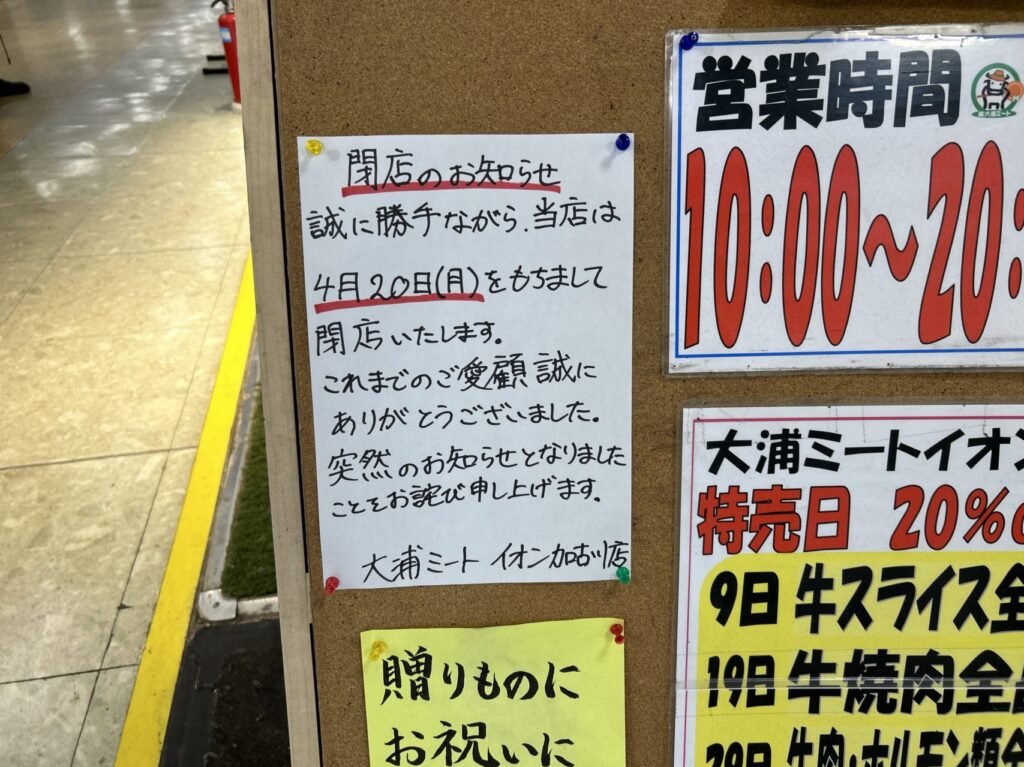 閉店のお知らせ
誠に勝手ながら、当店は
4月20日(月)をもちまして
閉店いたします。
これまでのご愛顧誠に
ありがとうございました。
突然のお知らせとなりました
ことをお詫び申し上げます。
大浦ミート イオン加古川店
贈りものに
お祝いに
営業時間
10:00～20:
大浦ミートイオン
特売日 20%
9日 牛スライス全
19日 牛焼肉全
29日 牛肉・ホルモン類全